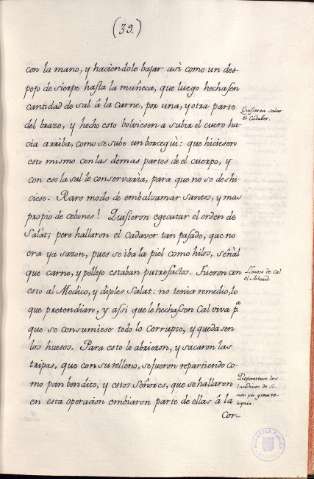 (39.)
con la mano, y haciendole bajar asi como un des-
pojo de sierpe hasta la muñeca, que luego hechasen
cantidad de sal á la carne, por una, y otra parte
del brazo, y hecho esto bolviesen a subir el cuero ha-
cia arriba, como se sube un borcegui: que hiciesen
esto mismo con las demas partes de el cuerpo, y
con eso la sal le conservaria, para que no se deshi-
ciese. Raro modo de embalsamar santos, y mas
propio de cecinas! Quisieron egecutar el orden de
Salar; pero hallaron el Cadaver tan pasado, que no
era ya sazon, pues se iba la piel como hilas, señal
que carne, y pellejo estaban putrefactos. Fueron con
esto al Medico, y dijoles Salat: no tenia remedio lo
que pretendian, y assi que le hechasen Cal viva pª
que se consumiese todo lo corrupto, y quedasen
los huesos. Para esto le abrieron, y sacaron las
tripas, que consumillero, se fueron repartiendo co-
mo pan bendito, y estos Señores, que se hallaron
en esta operacion embiaron parte de ellas á la
Cor-
Quisieron salar
el Cadaver.
de Cal
el
Repartieron las